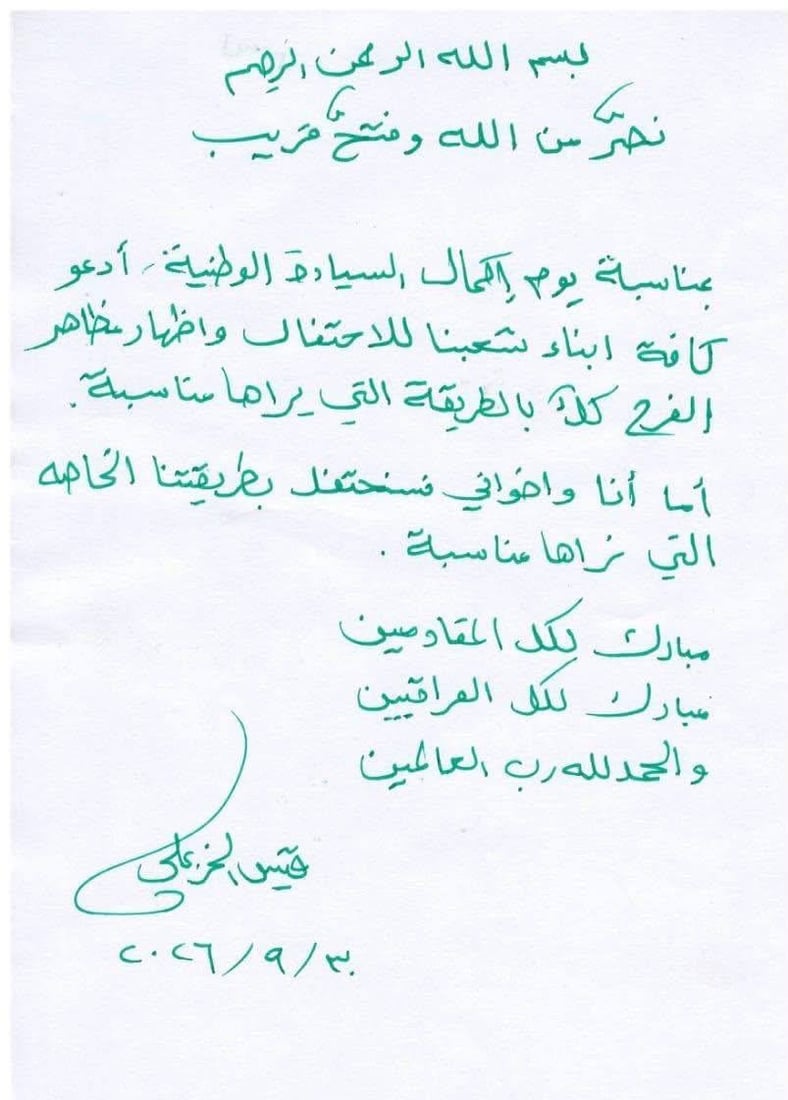 بسم الله الرحمن الرحيم
نصرٌ من الله وفتحٌ قريب
بمناسبة يوم إكمال السيادة الوطنية، أدعو
كافة ابناء شعبنا للاحتفال واظهار مظاهر
الفرح كلاً بالطريقة التي يراها مناسبة.
أما أنا واخواني فسنحتفل بطريقتنا الخاصه
التي نراها مناسبة.
مبارك لكل المقاومين
مبارك لكل العراقيين
والحمد لله رب العالمين
قيس الخزعلي
٢٠٢٦/٩/٣٠